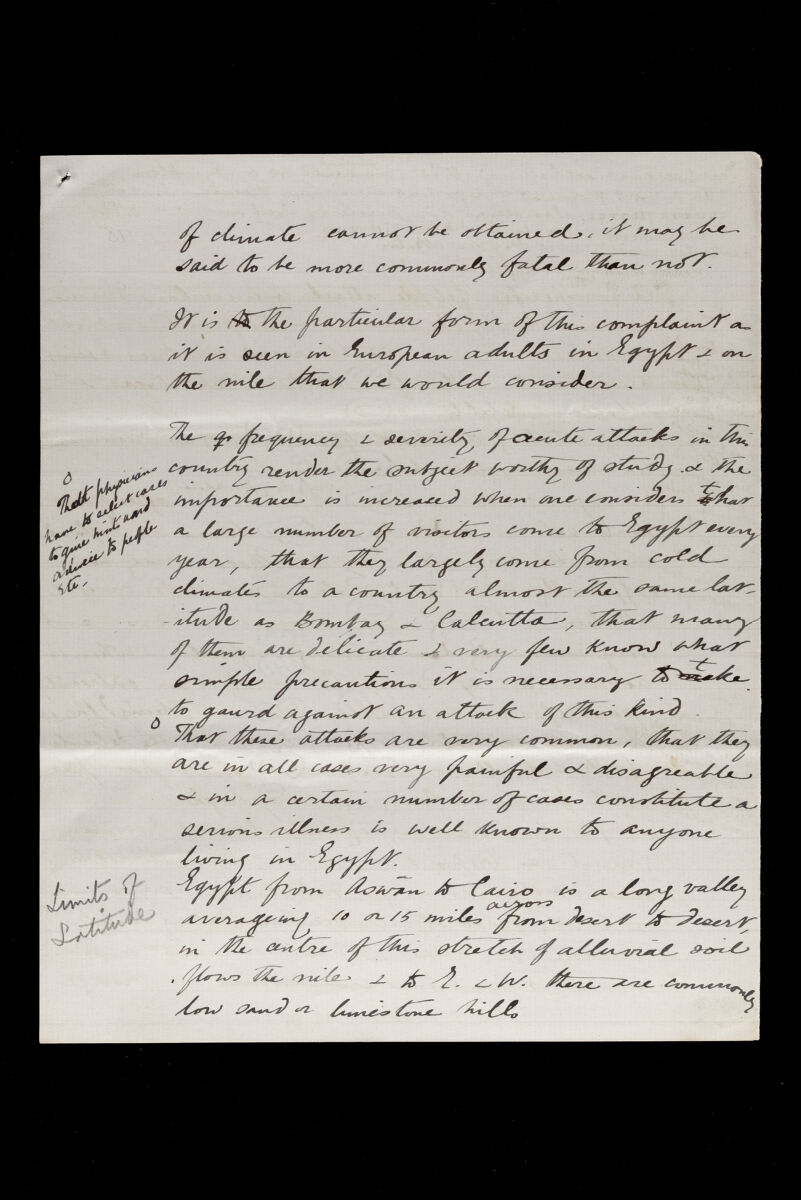 of climate cannot be obtained, it may be
said to be more commonly fatal than not.
It is to the particular form of this complaint as
it is seen in European adults in Egypt & on
the nile that we would consider.
The fr frequency & severity of acute attacks in this
country render the subject worthy of study & the
importance is increased when one considers that
a large number of visitors come to Egypt every
year, that they largely come from cold
climates to a country almost the same lat-
-itude as Bombay & Calcutta, that many
of them are delicate & very few know what
simple precautions it is necessary to make
to gaurd against an attack of this kind
o
That these attacks are very common, that they
are in all cases very painful & disagreable
& in a certain number of cases constitute a
serious illness is well known to anyone
living in Egypt.
Egypt from Aswân to Cairo is a long valley
averageing 10 or 15 miles across from desert to desert,
in the centre of this stretch of alluvial soil
flows the nile & to E. & W. there are commonly
low sand or limestone hills
o
That physicians
have to select cases
to give hint and
advice to people
etc.
Limits of
Latitude